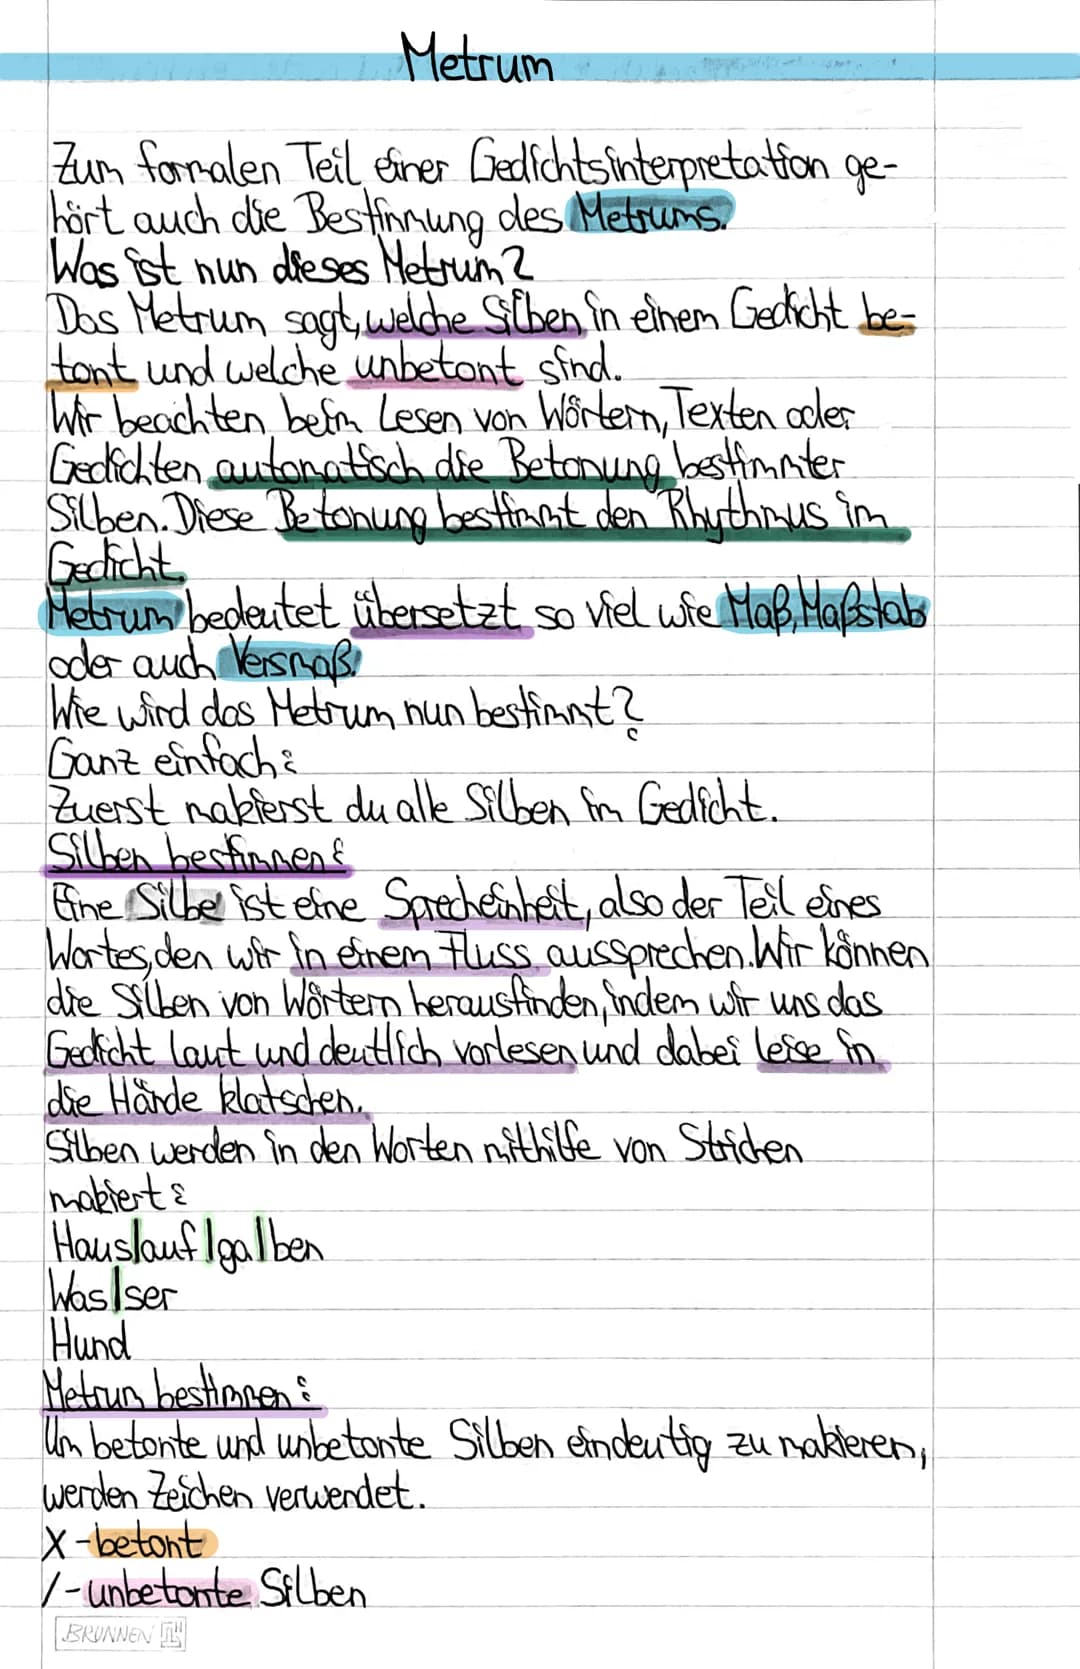 Metrum
Zum formalen Teil einer Gedichtsinterpretation ge-
hört auch die Bestimmung des Metrums.
Was ist nun dieses Metrum?
Das Metrum sagt, welche Silben in einem Gedicht be-
tont und welche unbetont sind.
Wir beachten beim Lesen von Wörtern, Texten oder
Gedichten automatisch die Betonung bestimmter
Silben. Diese Betonung bestimmt den Rhythmus im
Gedicht.
Metrum bedeutet übersetzt so viel wie Maß, Maßstab
oder auch Versmaß.
Wie wird das Metrum nun bestimmt?
Ganz einfach:
Zuerst makierst du alle Silben im Gedicht.
Silben bestimmen:
Eine Silbe ist eine Sprecheinheit, also der Teil eines
Wortes, den wir in einem Fluss aussprechen. Wir können
die Silben von Wörtern herausfinden, indem wir uns das
Gedicht laut und deutlich vorlesen und dabei leise in
die Hände klatschen.
Silben werden in den Worten mithilfe von Strichen
makiert:
Haus|auf|ga|ben
Was|ser
Hund
Metrum bestimmen:
Um betonte und unbetonte Silben eindeutig zu makieren,
werden Zeichen verwendet.
X - betont
/ - unbetonte Silben
BRUNNEN